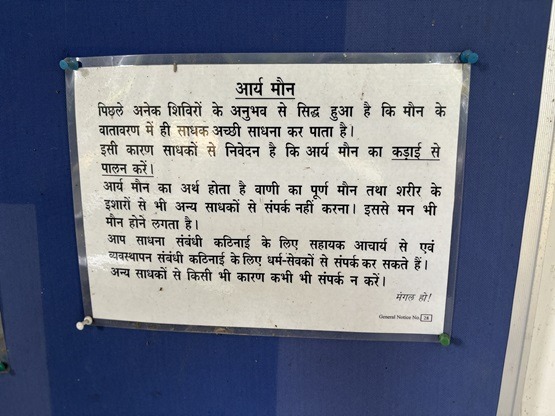 आर्य मौन
पिछले अनेक शिविरों के अनुभव से सिद्ध हुआ है कि मौन के
वातावरण में ही साधक अच्छी साधना कर पाता है।
इसी कारण साधकों से निवेदन है कि आर्य मौन का कड़ाई से
पालन करें।
आर्य मौन का अर्थ होता है वाणी का पूर्ण मौन तथा शरीर के
इशारों से भी अन्य साधकों से संपर्क नहीं करना। इससे मन भी
मौन होने लगता है।
आप साधना संबंधी कठिनाई के लिए सहायक आचार्य से एवं
व्यवस्थापन संबंधी कठिनाई के लिए धर्म-सेवकों से संपर्क कर सकते हैं।
अन्य साधकों से किसी भी कारण कभी भी संपर्क न करें।
मंगल हो!
General Notice No. 28